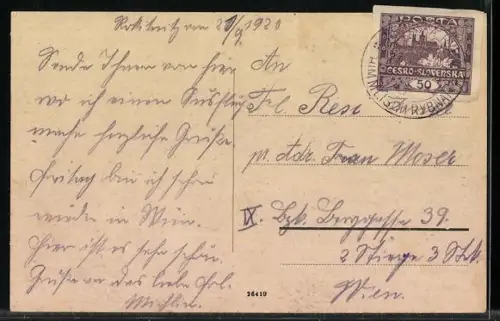 Rokitnitz am 21/9 1920
Sende Ihnen von hier
wo ich einen Ausflug
mache herzliche Grüße.
Freitag bin ich schon
wieder in Wien.
Hier ist es sehr schön.
Grüße an das liebe
An
Frl Resi
p. Adr. Frau Moser
IX. Bzk. Berggasse 39.
2 Stiege 3 Stk.
Wien.
POŠTA
ČESKO-SLOVENSKÁ
50
26410